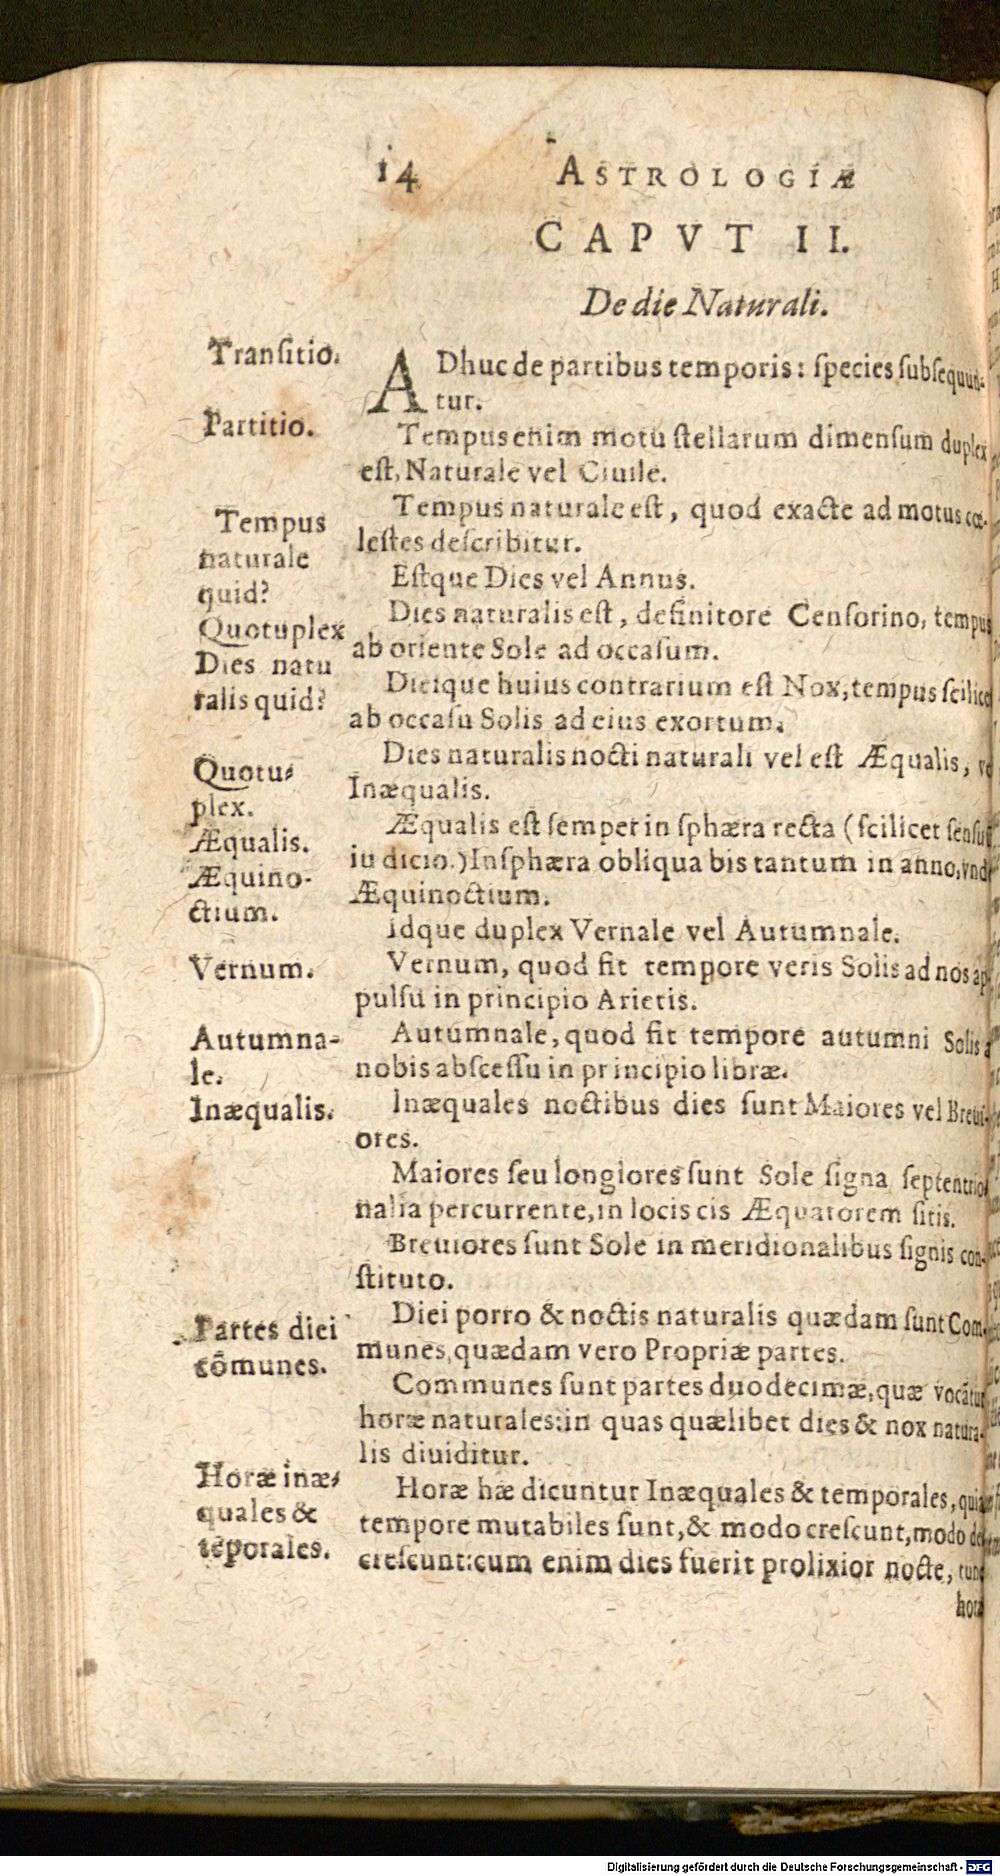 14 ASTROLOGIÆ
CAPVT II.
De die Naturali.
Tranſitio.
ADhuc de partibus temporis: ſpecies ſubſequun-
tur.
Partitio.
Tempus enim motu ſtellarum dimenſum duplex
eſt, Naturale vel Ciuile.
Tempus
naturale
quid?
Tempus naturale eſt, quod exacte ad motus cœ-
leſtes deſcribitur.
Quotuplex
Eſtque Dies vel Annus.
Dies natu
ralis quid?
Dies naturalis eſt, definitore Cenſorino, tempus
ab oriente Sole ad occaſum.
Dieique huius contrarium eſt Nox, tempus ſcilicet
ab occaſu Solis ad eius exortum.
Quotu-
plex.
Dies naturalis nocti naturali vel eſt Æqualis, vel
Inæqualis.
Æqualis.
Æquino-
ctium.
Æqualis eſt ſemper in ſphæra recta (ſcilicet ſenſus
iudicio.) In ſphæra obliqua bis tantum in anno, vnde
Æquinoctium.
Idque duplex Vernale vel Autumnale.
Vernum.
Vernum, quod fit tempore veris Solis ad nos ap
pulſu in principio Arietis.
Autumna-
le.
Autumnale, quod fit tempore autumni Solis a
nobis abſceſſu in principio libræ.
Inæqualis.
Inæquales noctibus dies ſunt Maiores vel Breui-
ores.
Maiores ſeu longiores ſunt Sole ſigna ſeptentrio
nalia percurrente, in locis cis Æquatorem ſitis.
Breuiores ſunt Sole in meridionalibus ſignis con-
ſtituto.
Partes diei
cõmunes.
Diei porro & noctis naturalis quædam ſunt Com-
munes, quædam vero Propriæ partes.
Communes ſunt partes duodecimæ, quæ vocãtur
horæ naturales: in quas quælibet dies & nox natura-
lis diuiditur.
Horæ inæ-
quales &
tẽporales.
Horæ hæ dicuntur Inæquales & temporales, quia
tempore mutabiles ſunt, & modo creſcunt, modo de
creſcunt: cum enim dies fuerit prolixior nocte, tunc
horæ
Digitalisierung gefördert durch die Deutsche Forschungsgemeinschaft - DFG